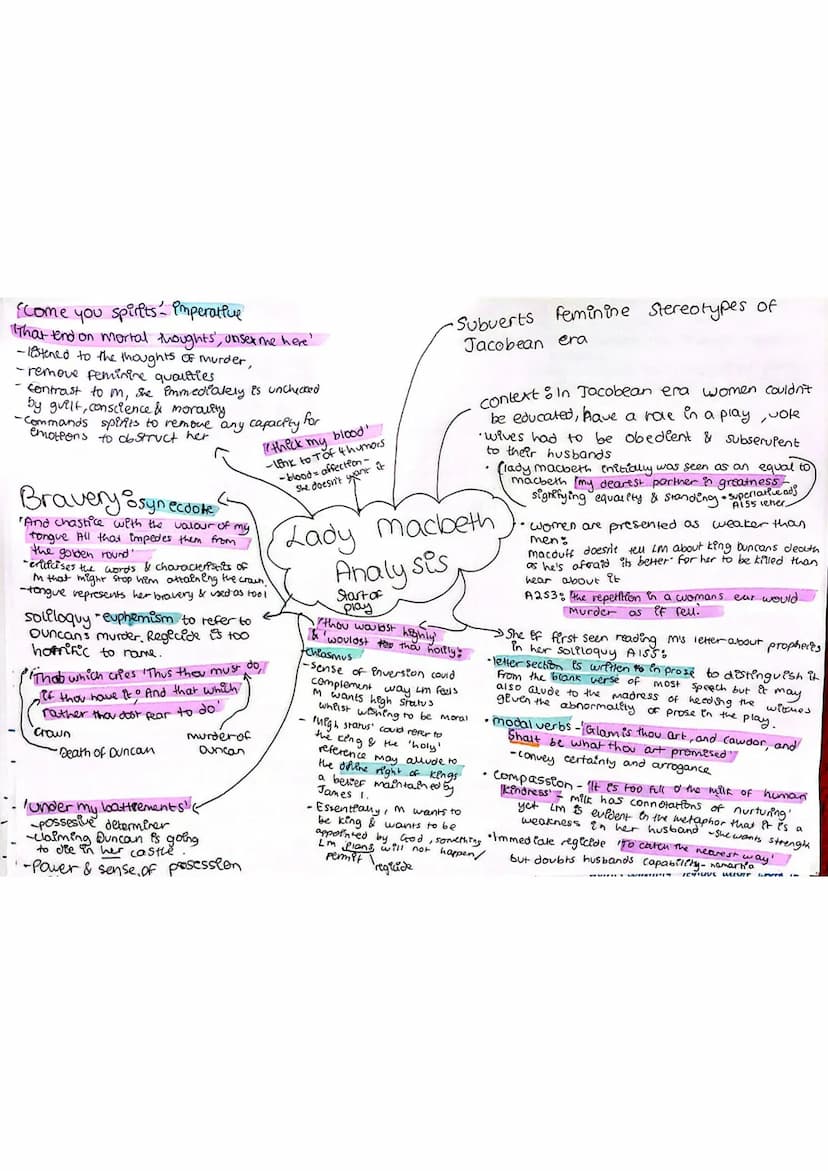 'Come you spirits'- imperative
'That tend on mortal thoughts', unsex me here'
- listened to the thoughts of murder,
- remove feminine qualities
- contrast to M, she immediately is unchecked
by guilt, conscience & morality
- Commands spirits to remove any capacity for
emotions to obstruct her
'thick my blood'
- link to T of 4 humors
- blood = affection -
she doesn't want it
Bravery: synecdoke
'And chastice with the valour of my
tongue All that impedes thee from
the golden round'
- critisises the words & characteristics of
M that might stop him attaining the crown.
- tongue represents her bravery & used as tool
soliloquy - euphemism to refer to
Duncan's murder. Regicide is too
horrific to name.
'That which cries 'Thus thou must do,
if thou have it: And that which
rather thou dost fear to do'
crown
Death of Duncan
murder of
Duncan
'Under my battlements'
- possesive determiner
- claiming Duncan is going
to die in her castle.
- Power & sense of prosession
Lady Macbeth
Analysis
Start of
play
'thou wouldst highly
& 'wouldst thou holily:
Chiasmus
- sense of inversion could
complement way LM feels
M wants high status
whilst wishing to be moral
- 'High status' could refer to
the king & the 'holy'
reference may allude to
the divine right of kings
a belief maintained by
James 1.
- Essentially, M wants to
be king & wants to be
appointed by God, something
LM plans will not happen/
permit
regicide
Subverts feminine stereotypes of
Jacobean era
context: In Jacobean era women couldn't
be educated, have a role in a play, vote
· wives had to be obedient & subservient
to their husbands
· (lady macbeth initially was seen as an equal to
macbeth 'my dearest partner in greatness'
signifying equality & standing - superlative adj
A1S5 letter
· women are presented as weaker than
men:
macduff doesn't tell LM about king Duncans death
as he's afraid its better for her to be killed than
hear about it
A2S3: 'the repetition in a womans ear would
Murder as it fell.'
She if first seen reading M's letter about prophecies
in her soliloquy A1S5:
· letter section is written in prose to distinguish it
from the blank verse of most speech but it may
also alude to the madness of heeding the witches
given the abnormality of prose in the play.
· modal verbs - 'Glamis thou art, and cawdor, and
Shalt be what thou art promised'
- convey certainty and arrogance
· Compassion - 'It is too full o' the milk of human
kindness' - milk has connotations of 'nurturing'
yet LM is evident in the metaphor that it is a
weakness in her husband - she wants strength
· Immediate regicide 'To catch the nearest way'
but doubts husbands capability - hamartia